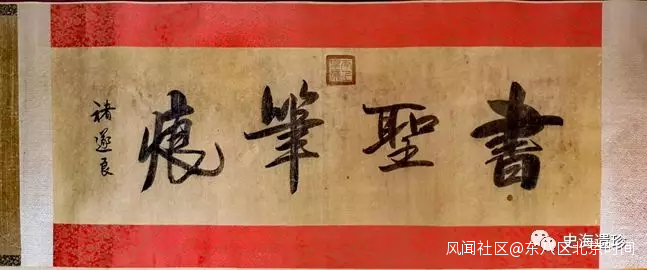 書聖筆痕
褚遂良
史海遗珍
风闻社区@东八区北京时间